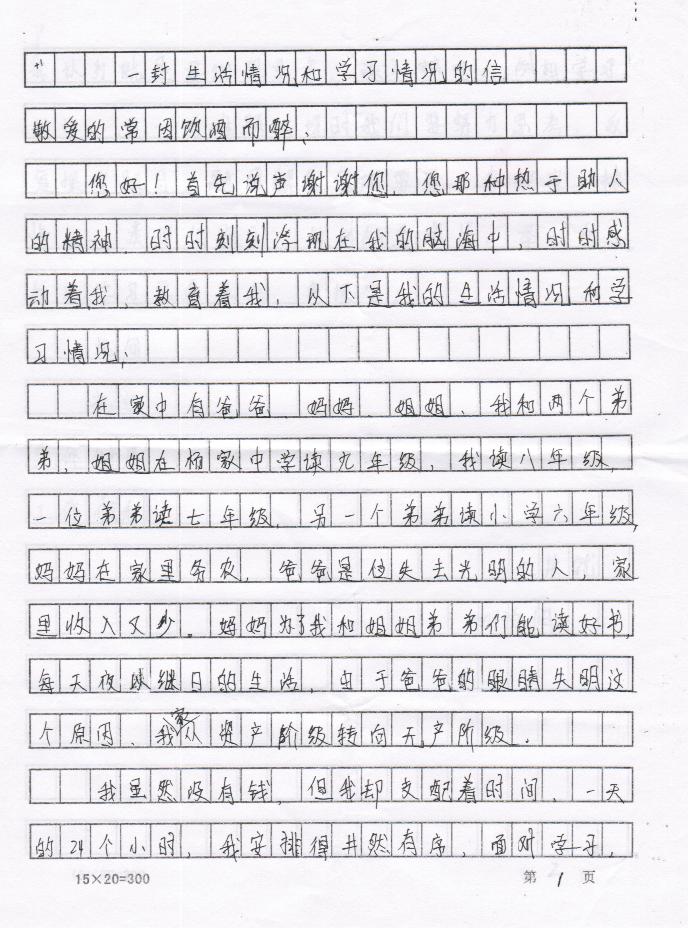 一封生活情况和学习情况的信
敬爱的常因饮酒而醉：
您好！首先说声谢谢您，您那种热于助人
的精神，时时刻刻浮现在我的脑海中，时时感
动着我，教育着我，以下是我的生活情况和学
习情况：
在家中有爸爸、妈妈、姐姐、我和两个弟
弟，姐姐在杨家中学读九年级，我读八年级，
一位弟弟读七年级，另一个弟弟读小学六年级，
妈妈在家里务农，爸爸是位失去光明的人，家
里收入又少。妈妈为了我和姐姐弟弟们能读好书，
每天夜以继日的生活，由于爸爸的眼睛失明这
个原因，我家从资产阶级转向无产阶级．
我虽然没有钱，但我却支配着时间，一天
的24个小时，我安排得井然有序，面对学习，
15×20=300
第 1 页